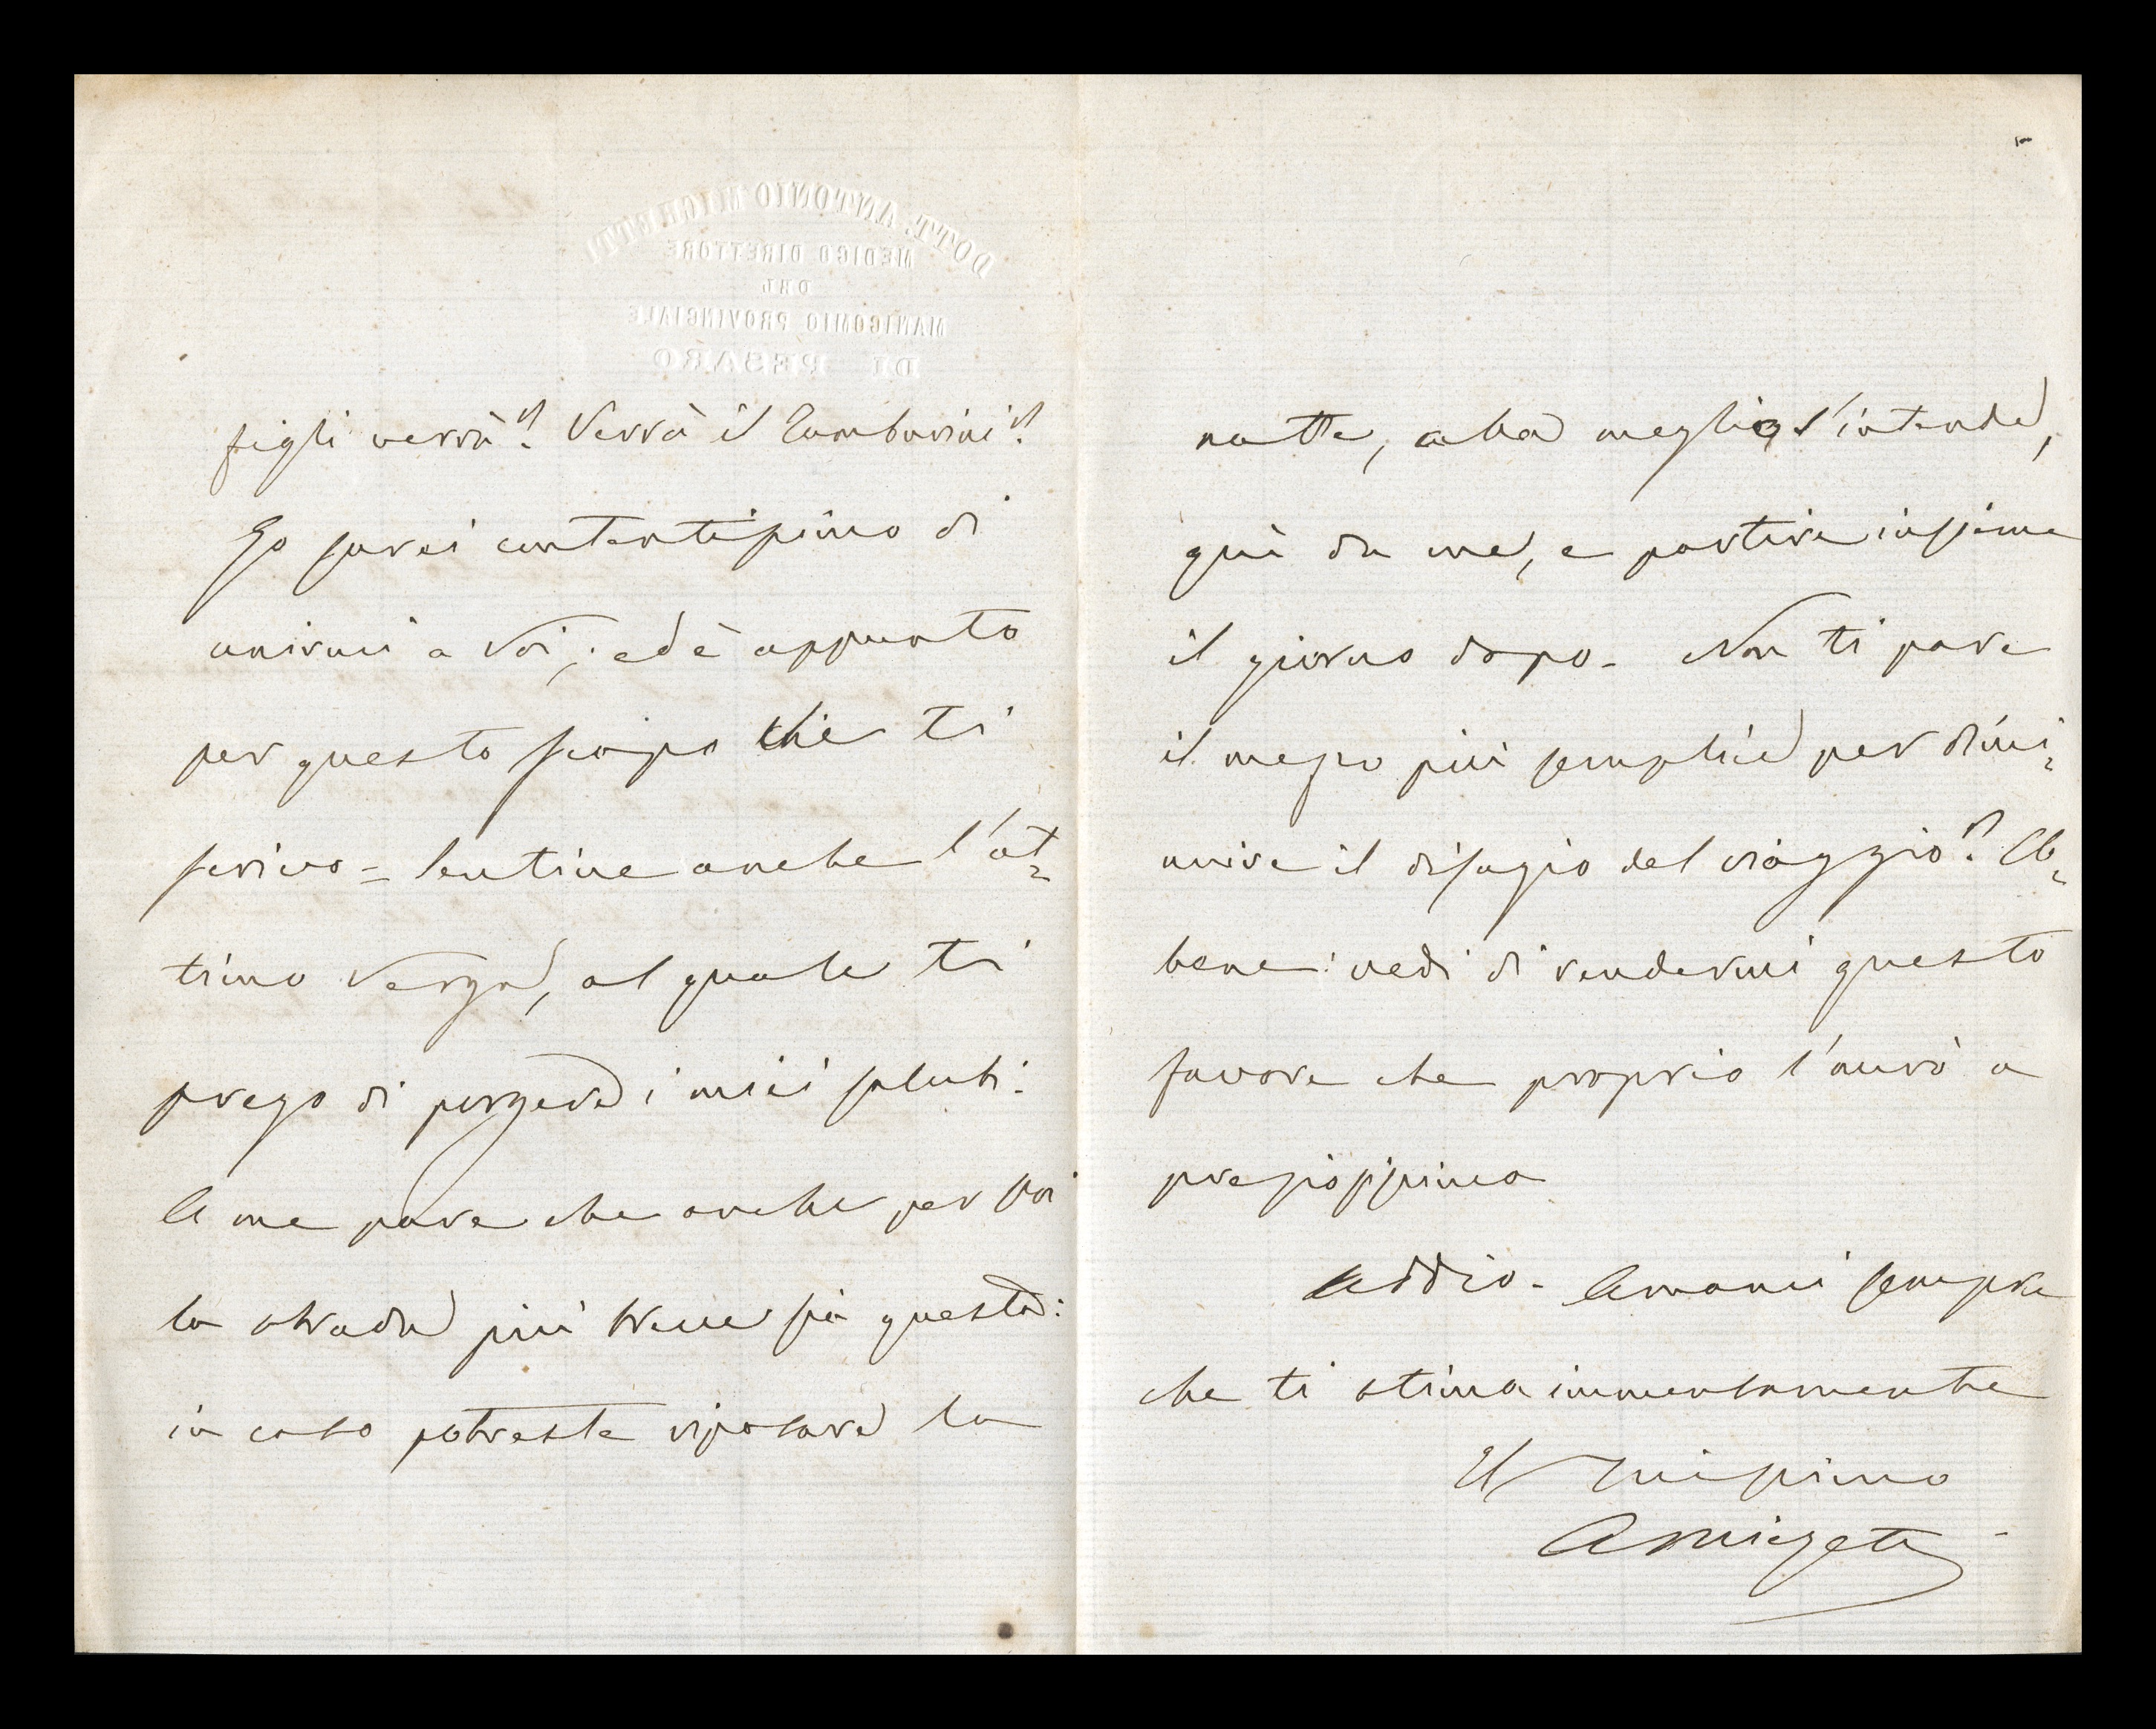 DOTT. ANTONIO MICHETTI
MEDICO DIRETTORE
DEL
MANICOMIO PROVINCIALE
DI PESARO
figli verrà? Verrà il Tamburini?
Io sarei contentissimo di
unirmi a Voi; ed è appunto
per questo scopo che ti
scrivo = sentine anche l'ot=
timo Verga, al quale ti
prego di porgere i miei saluti.
A me pare che anche per Voi
la strada più breve sia questa:
in caso potreste riposare la
notte, alla meglio s'intende,
quì da me, e partire insieme
il giorno dopo. Non ti pare
il mezzo più semplice per dimi=
nuire il disagio del viaggio? Eb=
bene: vedi di rendermi questo
favore che proprio l'avrò a
preziosissimo
Addio. Amami sempre
che ti stima immensamente
Il
AMichetti